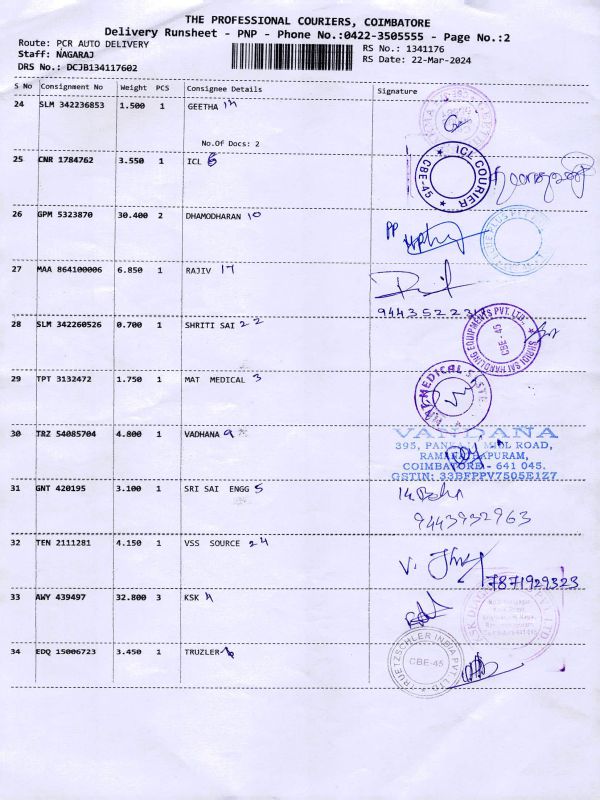 THE PROFESSIONAL COURIERS, COIMBATORE
Delivery Runsheet - PNP - Phone No.:0422-3505555 - Page No.:2
Route: PCR AUTO DELIVERY
Staff: NAGARAJ
DRS No.: DCJB134117602
RS No.: 1341176
RS Date: 22-Mar-2024
S No Consignment No Weight PCS Consignee Details Signature
24 SLM 342236853 1.500 1 GEETHA
No.Of Docs: 2
25 CNR 1784762 3.550 1 ICL
ICL COURIER
CBE-45
26 GPM 5323870 30.400 2 DHAMODHARAN 10
PP
27 MAA 864100006 6.850 1 RAJIV 17
28 SLM 342260526 0.700 1 SHRITI SAI 22
SHRIDI SAI HANDLING EQUIPMENTS PVT. LTD.
CBE - 45
29 TPT 3132472 1.750 1 MAT MEDICAL 3
30 TRZ 54085704 4.800 1 VADHANA 9
VANDANA
395, MILL ROAD,
RAMANATHAPURAM,
COIMBATORE - 641 045.
GSTIN: 33BFPPV7505E1Z7
31 GNT 420195 3.100 1 SRI SAI ENGG 5
9443932963
32 TEN 2111281 4.150 1 VSS SOURCE 24
7871929323
33 AWY 439497 32.800 3 KSK
34 EDQ 15006723 3.450 1 TRUZLER
TRUETZSCHLER INDIA PVT. LTD.
CBE-45